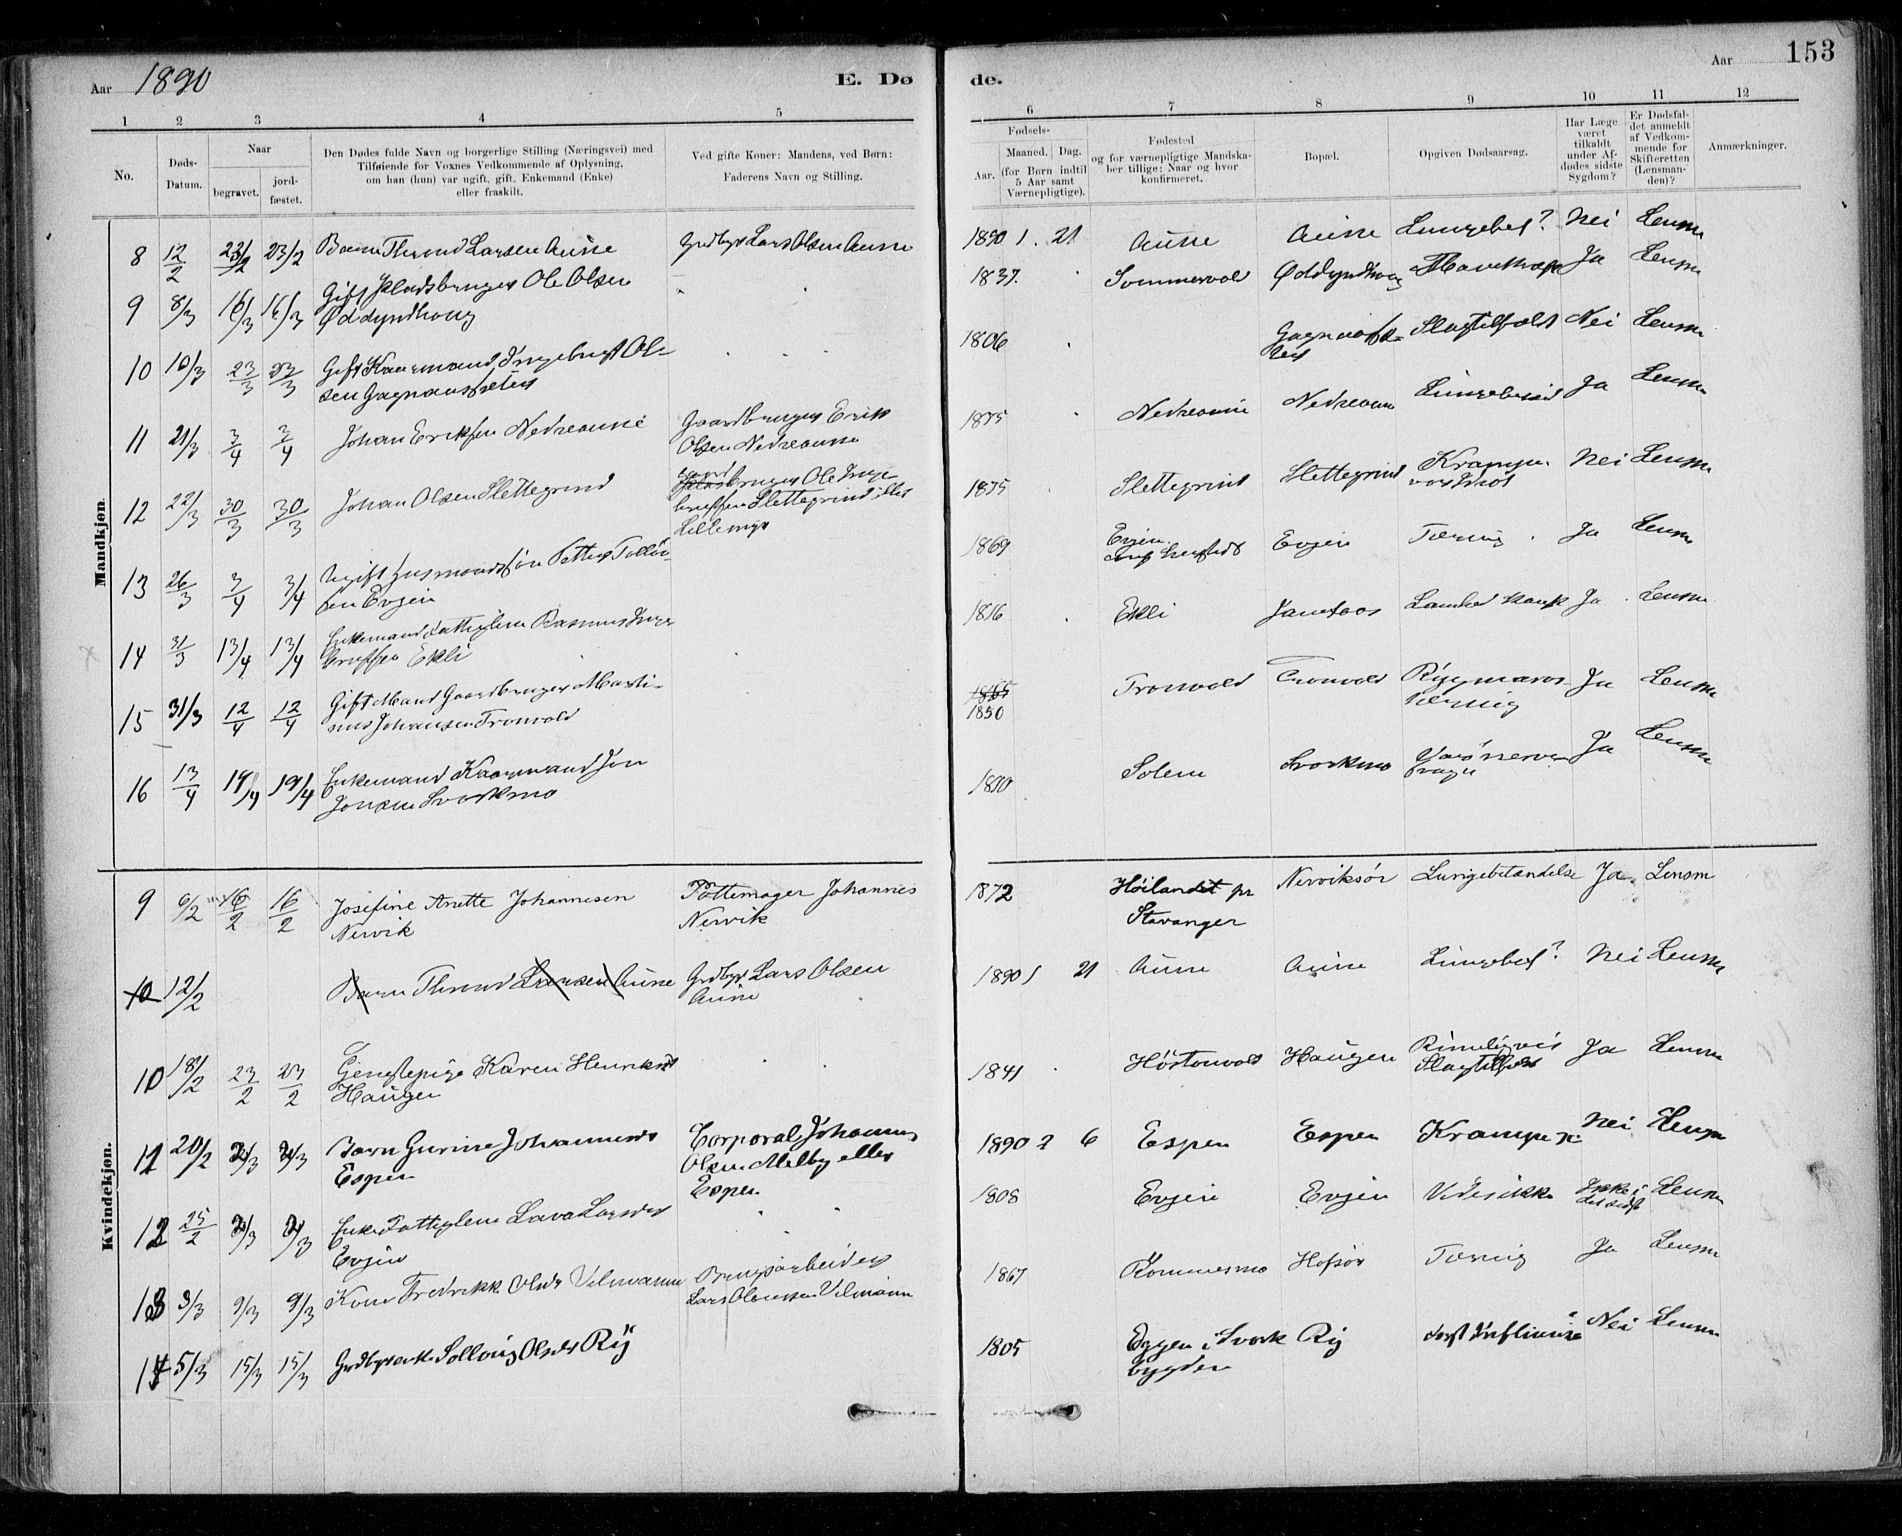 Aar 1890
E. Døde.
Aar 153
1 2 3 4 5 6 7 8 9 10 11 12
No.
Døds-Datum.
Naar
begravet.
jordfæstet.
Den Dødes fulde Navn og borgerlige Stilling (Næringsvei) med
Tilføiende for Voxnes Vedkommende af Oplysning,
om han (hun) var ugift, gift, Enkemand (Enke)
eller fraskilt.
Ved gifte Koner: Mandens, ved Børn:
Faderens Navn og Stilling.
Fødsels-
Aar. Maaned. Dag.
(for Børn indtil
5 Aar samt
Værnepligtige).
Fødested
og for værnepligtige Mandska-
ber tillige: Naar og hvor
konfirmeret.
Bopæl.
Opgiven Dødsaarsag.
Har Læge
været
tilkaldt
under Af-
dødes sidste
Sygdom?
Er Dødsfal-
det anmeldt
af Vedkom-
mende for
Skifteretten
(Lensman-
den)?
Anmærkninger.
Mandkjøn
8 12/2 23/2 23/2 Barn Thrond Larsen Aune Grdbgr Lars Olsen Aune 1890 1. 21 Aune Aune Lungebet? Nei Lensm
9 8/3 16/3 16/3 Gift Pladsbruger Ole Olsen
Øddyndhaug 1837. Sommervold Øddyndhaug Ja Lensm
10 10/3 23/3 23/3 Gift Kaarmand Ingebrigt Ol-
sen Gagnaassæter 1806 Slagtilfæld Nei Lensm
11 21/3 3/4 3/4 Johan Eriksen Nedreaune Gaardbruger Erik
Olsen Nedreaune 1875 Nedreaune Nedreaune Ja Lensm
12 22/3 30/3 30/3 Johan Olsen Slettegrind Gaardbruger Ole Inge-
brigtsen Slettegrind eller
Lillemyr 1875 Slettegrind Slettegrind Nei Lensm
13 26/3 3/4 3/4 Ugift Husmandssøn Petter
sen Evjen 1869 Evjen Evjen Tæring Ja Lensm
14 31/3 13/4 13/4 Enkemand Fattiglem Rasmus Inge-
brigtsen Ekli 1816 Ekli Ja Lensm
15 31/3 12/4 12/4 Gift Mand Gaardbruger Marti-
nus Johansen Tronvold 1865
1850 Tronvold Tronvold Rygmarvs Ja Lensm
16 13/4 19/4 19/4 Enkemand Kaarmand Jon
Jonsen Svorkmo Solem Svorkmo Ja Lensm
Kvindekjøn.
9 6/2 16/2 16/2 Josefine Anette Johannesen
Nervik Pottemager Johannes
Nervik 1872 Høilandet pr
Stavanger Nerviksør Lungebetændelse Ja Lensm
10 12/2 Barn Thrond Larsen Aune Grdbgr Lars Olsen
Aune 1890 1 21 Aune Aune Lungebet? Nei Lensm
10 18/2 23/2 23/2 Karen Henriksd
Haugen 1841 Høstonvold Haugen Rimeligvis
Slagtilfæld Ja Lensm
11 20/2 2/3 2/3 Barn Gurine Johannesd
Espen Corporal Johannes
Olsen Melby eller
Espen 1890 2 6 Espen Espen Krampe Nei Lensm
12 25/2 2/3 2/3 Enke Fattiglem Lava Larsd
Evjen 1808 Evjen Evjen Vides ikke Ikke i
det sidste Lensm
13 3/3 9/3 9/3 Kone Fredrikke Olsd Velmann Brugsarbeider
Lars Velmann 1867 Rømmesmo Hofsør Tæring Ja Lensm
14 5/3 15/3 15/3 Grdbgrenke Sollaug Olsd Ry 1805 Eggen i Svork
bygden Ry Influensa Nei Lensm